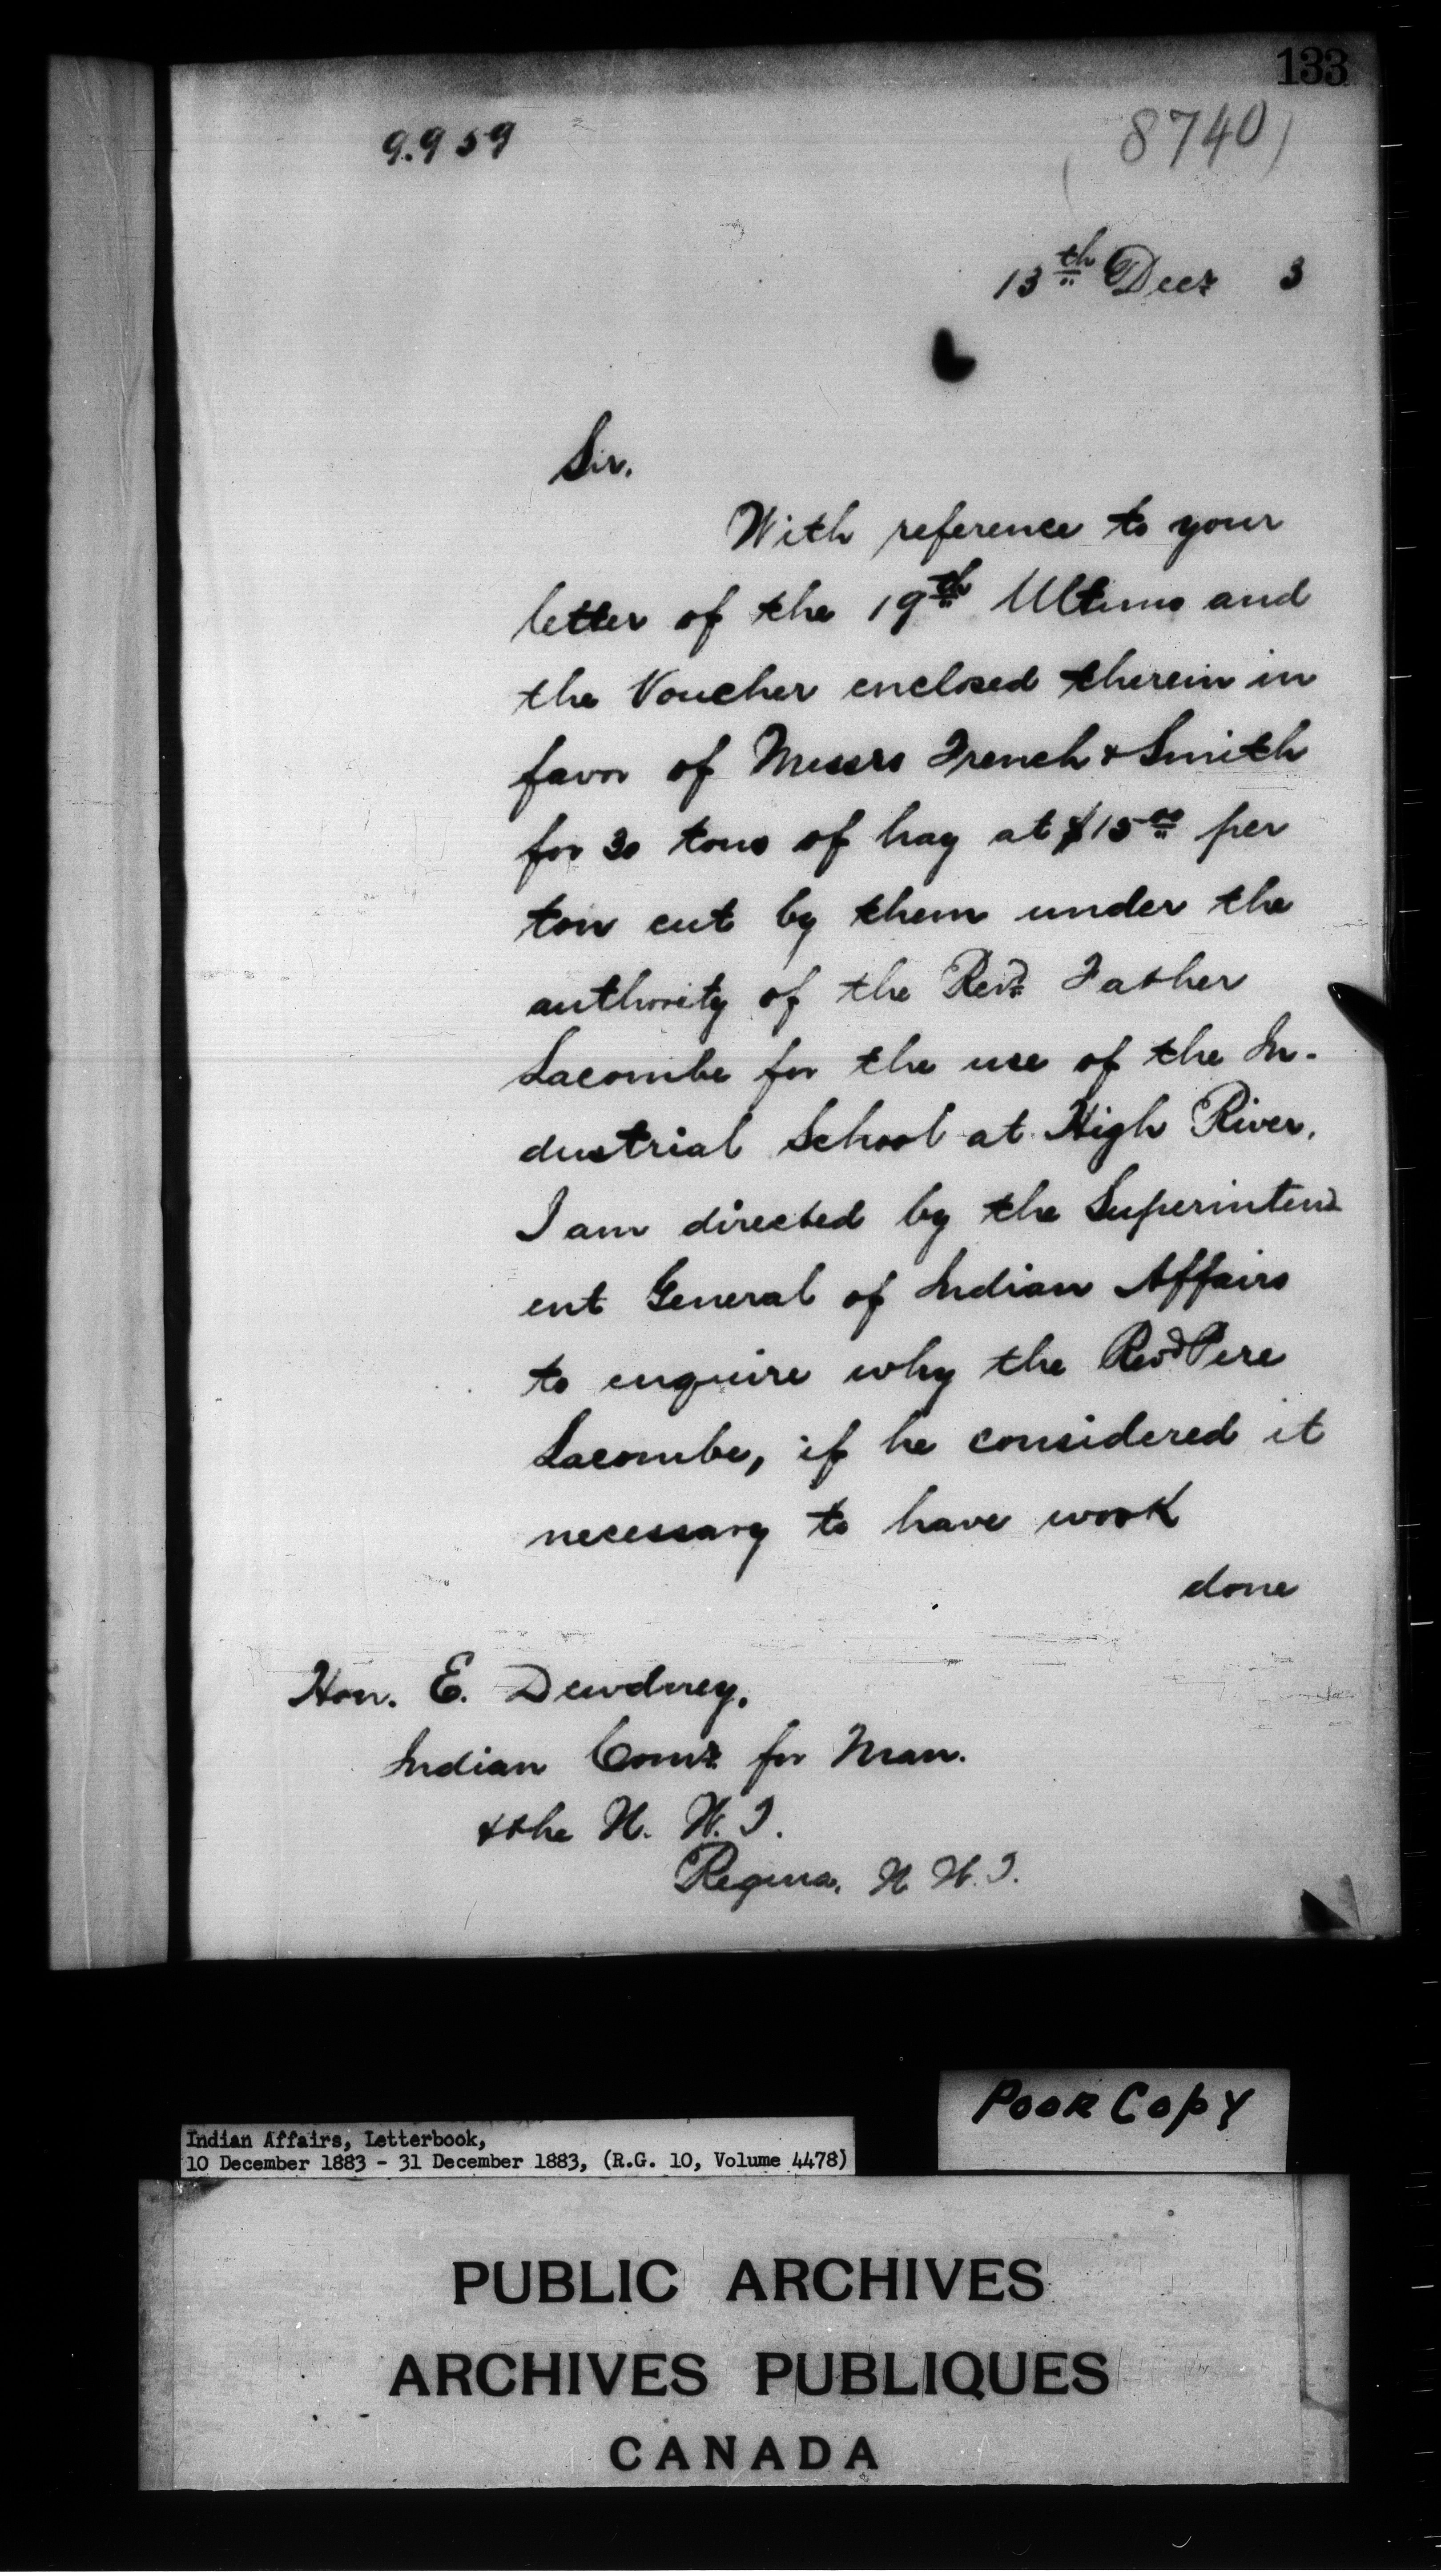 133
9.959
(8740)
13th Decr 3
Sir.
With reference to your
letter of the 19th Ultimo and
the Voucher enclosed therein in
favor of Messrs French & Smith
for 30 tons of hay at $15.00 per
ton cut by them under the
authority of the Revd. Father
Lacombe for the use of the In-
dustrial School at High River.
I am directed by the Superintend
ent General of Indian Affairs
to enquire why the Revd Pere
Lacombe, if he considered it
necessary to have work
done
Hon. E. Dewdney.
Indian Comr. for Man.
& the N. W. T.
Regina, N. W. T.
Poor Copy
Indian Affairs, Letterbook,
10 December 1883 - 31 December 1883, (R.G. 10, Volume 4478)
PUBLIC ARCHIVES
ARCHIVES PUBLIQUES
CANADA